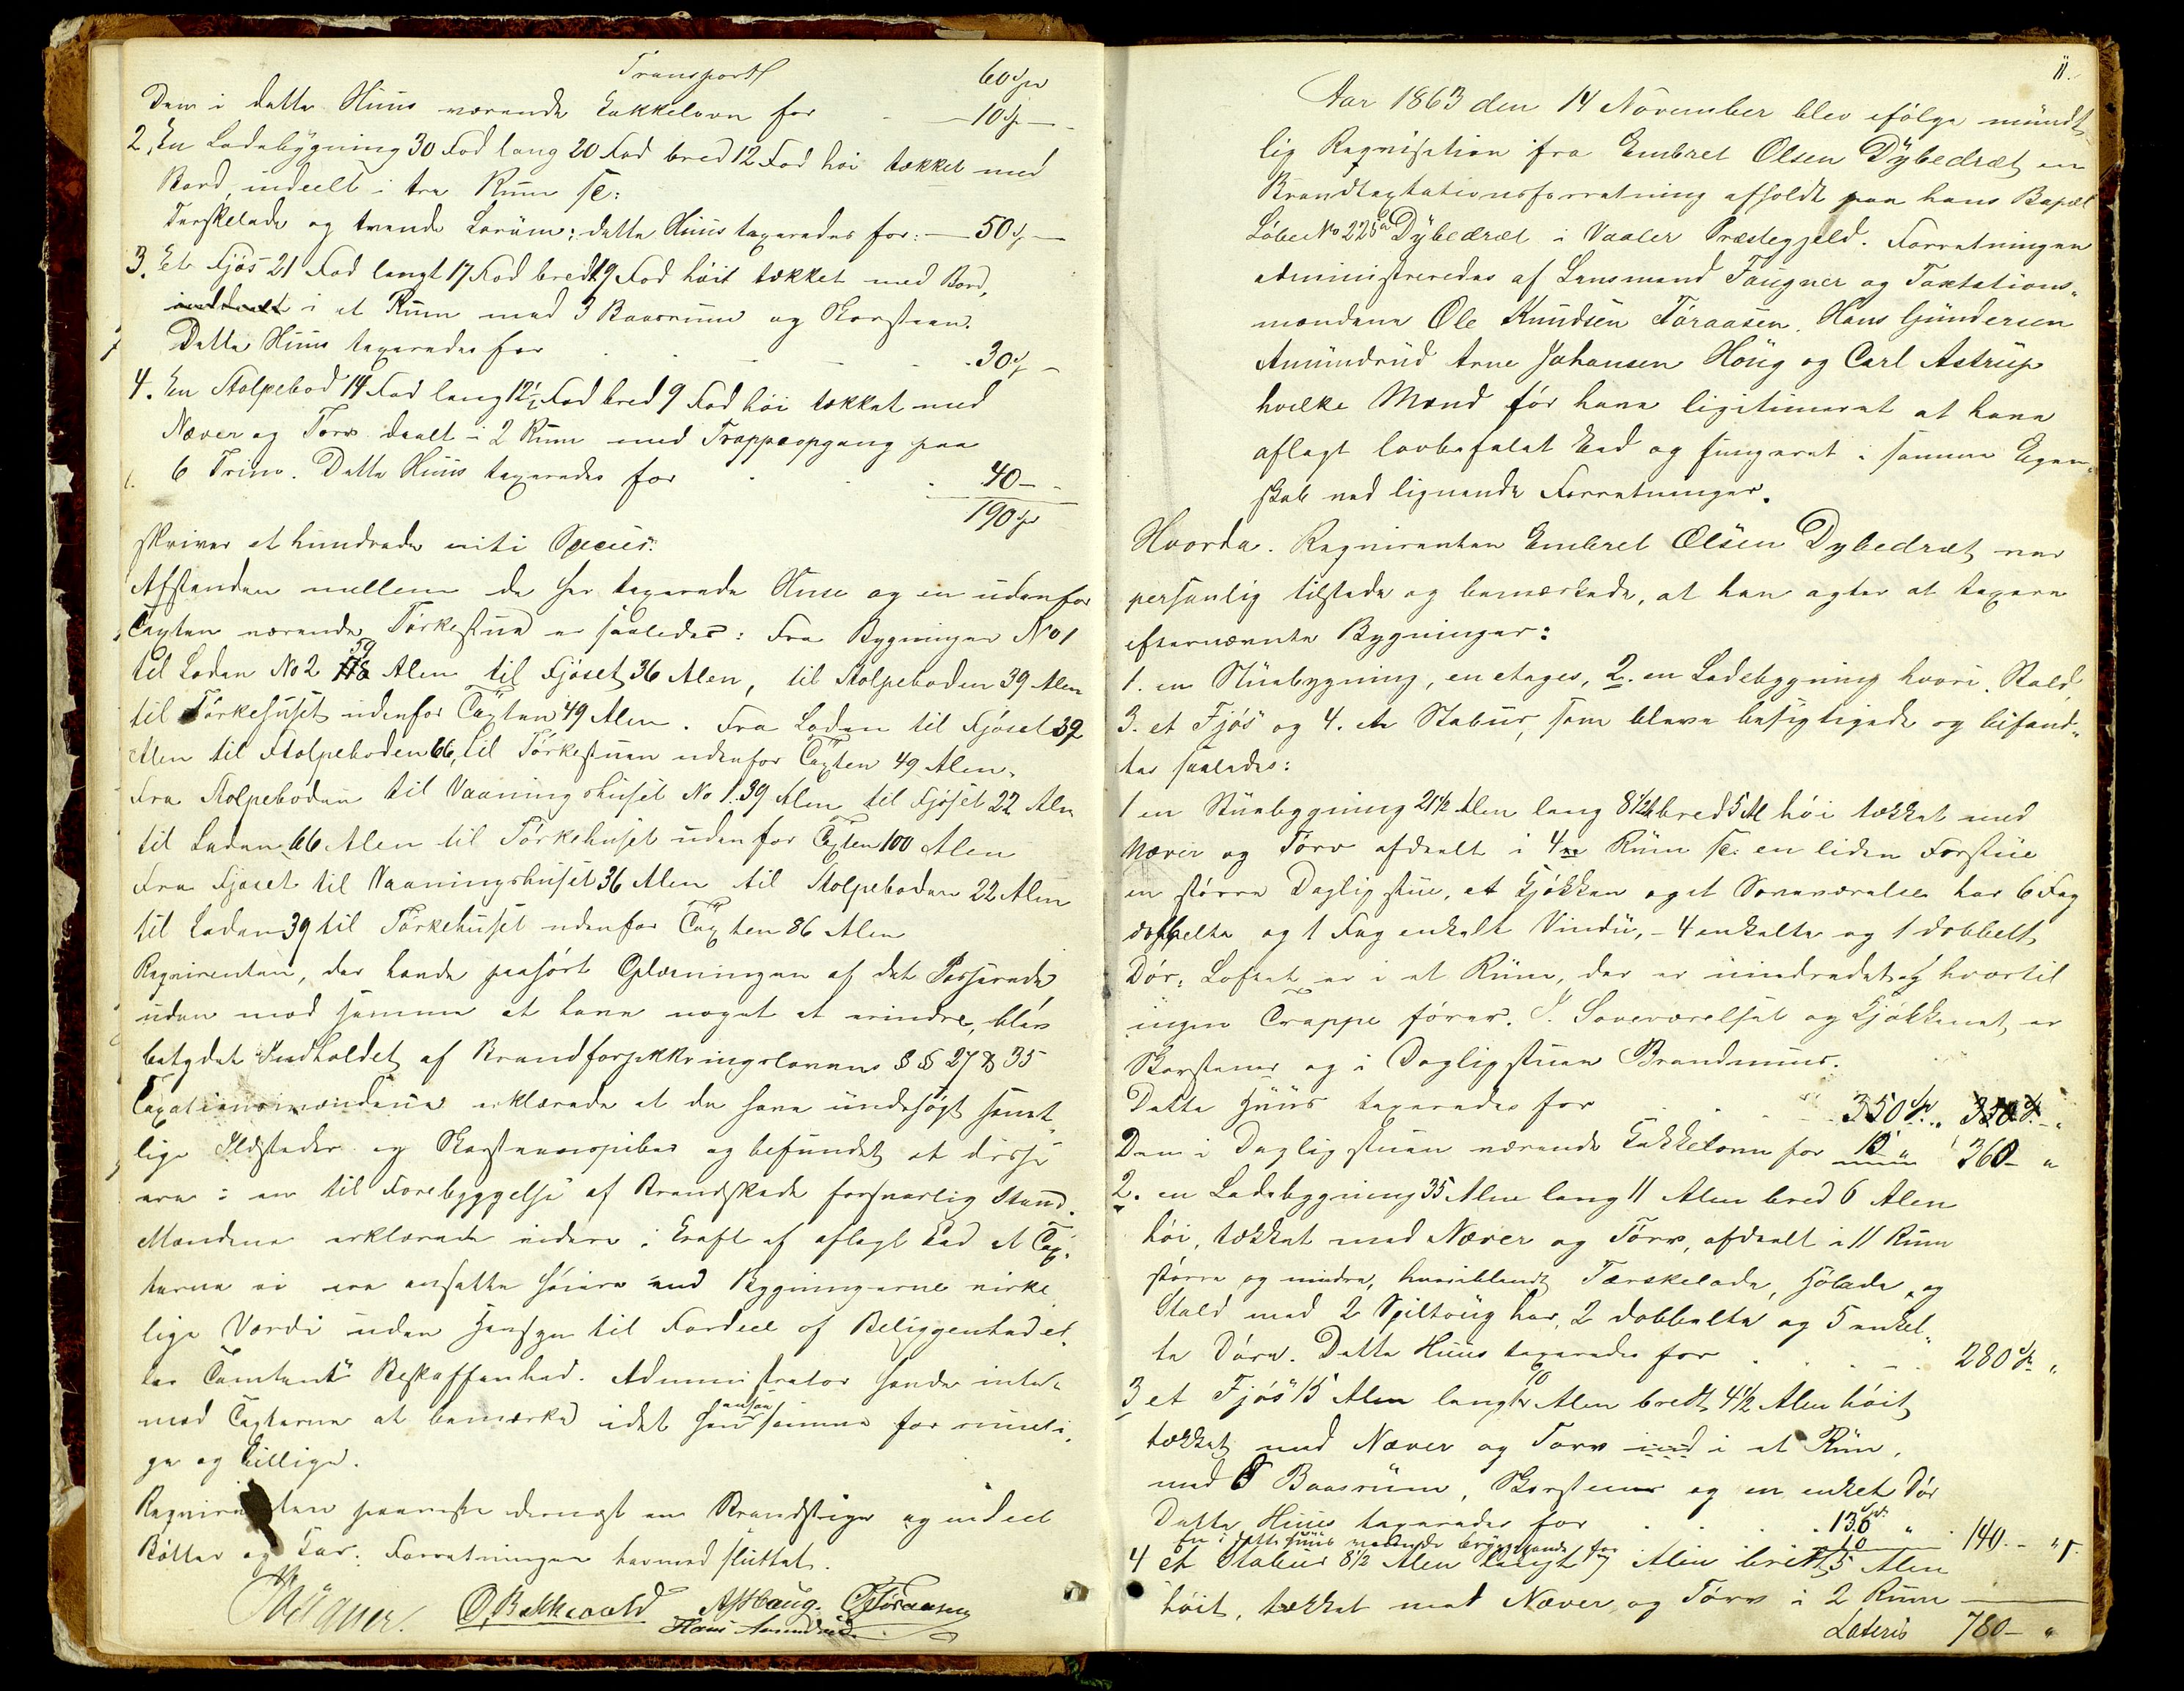 Transport 60 Spd
Den i dette Huus værende Kakkelovn for 10 Sp
2, En Ladebygning 30 Fod lang 20 Fod bred 12 Fod høi tækket med
Bord, indeelt i tre Rum sc:
Tærskelade og tvende Lørum; dette Huus taxeredes for: 50 Sp
3. Et Fjøs 21 Fod langt 17 Fod bredt 9 Fod høit tækket med Bord,
inddeelt i et Rum med 3 Baasrum og Skorsteen.
Dette Huus taxeredes for 30 Sp
4. En Stolpebod 14 Fod lang 12½ Fod bred 9 Fod høi tækket med
Næver og Torv deelt i 2 Rum med Trappeopgang paa
6 Trin. Dette Huus taxeredes for 40 -
190 Spd
skriver et hundrede niti Species.
Afstanden mellem de her taxerede Huse og en udenfor
Taxten værende Tørkestue er saaledes: Fra Bygningen No 1
til Laden No 2 39 Alen til Fjøset 36 Alen, til Stolpeboden 39 Alen
til Tørkehuset udenfor Taxten 49 Alen. Fra Laden til Fjøset 39
Alen til Stolpeboden 66, til Tørkestuen udenfor Taxten 49 Alen.
Fra Stolpeboden til Vaaningshuset No 1. 39 Alen til Fjøset 22 Alen
til Laden 66 Alen til Tørkehuset udenfor Taxten 100 Alen
Fra Fjøset til Vaaningshuset 36 Alen til Stolpeboden 22 Alen
til Laden 39 til Tørkehuset udenfor Taxten 86 Alen
Reqvirenten, der havde paahørt Oplæsningen af det Passerede
uden mod samme at have noget at erindre, blev
betydet Indholdet af Brandforsikkringslovens §§ 27 & 35
Taxationsmændene erklærede at de have undersøgt samt-
lige Ildsteder og Skorsteenspiber og befundet at disse
ere i en til Forebyggelse af Brandskade forsvarlig Stand.
Mændene erklærede videre i Kraft af aflagt Eed at Tax-
terne ei ere ansatte høiere end Bygningerne virke
lige Værdi uden Hensyn til Fordeel af Beliggenhed el-
ler Tomtens Beskaffenhed. Administrator havde intet
mod Taxterne at bemærke idet han ansaa samme for rimeli-
ge og billige.
Reqvirenten paaviste dernæst en Brandstige og endeel
Bøtter og Kar. Forretningen hermed sluttet.
Faugner. O, Bakkevold AJHaug. OKTøraasen
Hans Amundrud
11.
Aar 1863 den 14 November blev ifølge mundt
lig Reqvisition fra Embret Olsen Dybedræt en
Brandtaxtationsforretning afholdt paa hans Bopæl
Løbe No 225a Dybedræt i Vaaler Præstegjeld. Forretningen
administreredes af Lensmand Faugner og Taxtations-
mændene Ole Knudsen Tøraasen, Hans Gundersen
Amundrud Arne Johansen Houg og Carl Astrup
hvilke Mænd før have ligitimeret at have
aflagt lovbefalet Eed og fungeret i samme Egen-
skab ved lignende Forretninger.
Hvorda. Reqvirenten Embret Olsen Dybedræt var
personlig tilstede og bemærkede, at han agter at taxere
efternævnte Bygninger:
1. en Stuebygning, en etages, 2. en Ladebygning hvori Stald
3. et Fjøs og 4. et Stabur, som bleve besigtigede og befand-
tes saaledes:
1 en Stuebygning 21½ Alen lang 8½ Al bred 5 Al høi tækket med
Næver og Tørv afdeelt i 4re Rum sc: en liden Forstue
en større Dagligstue, et Kjøkken og et Soveværelse har 6 Fag
dobbelte og 1 Fag enkelt Vindu, - 4 enkelte og 1 dobbelt
Dør; Loftet er i et Rum, der er uindredet og hvortil
ingen Trappe fører. I Soveværelset og Kjøkkenet er
Skorstener og i Dagligstuen Brandmuur.
Dette Huus taxeredes for 350 Sp. 350 Sp.
Den i Dagligstuen værende Kakkelovn for 10 " 360 - "
2. en Ladebygning 35 Alen lang 11 Alen bred 6 Alen
høi, tækket med Næver og Tørv, afdeelt i 11 Rum
større og mindre, hvoriblandt Tærskelade, Høelade, og
Stald med 2 Spiltoug har 2 dobbelte og 5 enkel-
te Døre. Dette Huus taxeredes for 280 Sp. "
3 et Fjøs 15 Alen langt 10 Alen bredt 4½ Alen høit
tækket med Næver og Torv ind i et Rum,
med 8 Baasrum, Skorsteen og en enkelt Dør
Dette Huus taxeredes for 130 Sp. "
En i dette Huus værende Bryggepande for 10 140. - "
4 et Stabur 8½ Alen langt 7 Alen bredt 5 Alen
høit, tækket med Næver og Tørv i 2 Rum
Lateris 780 - "